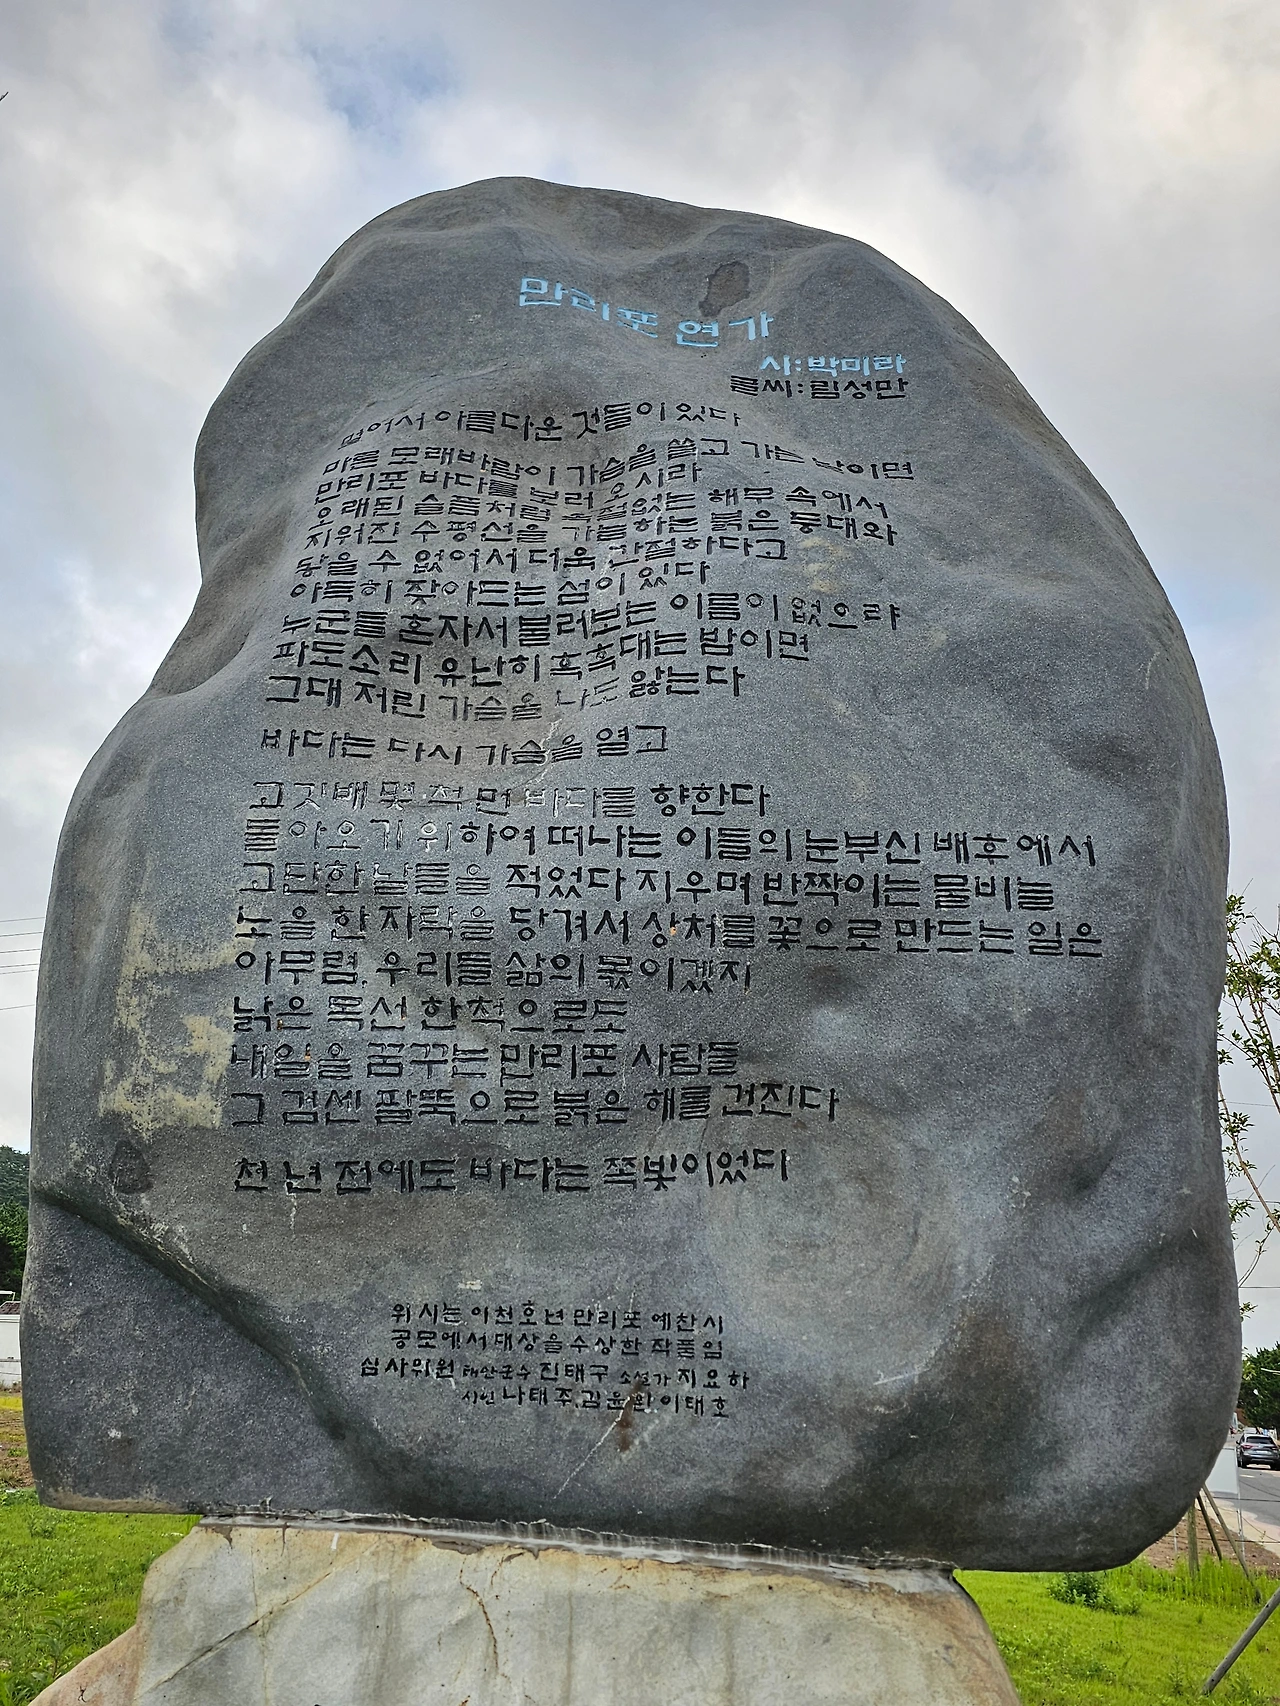 만리포 연가
시:박미라
글씨:림성만
멀어서 아름다운 것들이 있다
마른 모래바람이 가슴을 쓸고 가는 날이면
만리포 바다를 보러 오시라
오래된 슬픔처럼 속절없는 해무 속에서
지워진 수평선을 가늠하는 붉은 등대와
닿을 수 없어서 더욱 간절하다고
아득히 잦아드는 섬이 있다
누군들 혼자서 불러보는 이름이 없으랴
파도소리 유난히 흑흑대는 밤이면
그대 저린 가슴을 나도 앓는다
바다는 다시 가슴을 열고
고깃배 몇 척 먼 바다를 향한다
돌아오기 위하여 떠나는 이들의 눈부신 배후에서
고단한 날들을 적었다 지우며 반짝이는 물비늘
노을 한 자락을 당겨서 상처를 꽃으로 만드는 일은
아무렴, 우리들 삶의 몫이겠지
낡은 목선 한 척으로도
내일을 꿈꾸는 만리포 사람들
그 검센 팔뚝으로 붉은 해를 건진다
천 년 전에도 바다는 쪽빛이었다
위 시는 이천호년 만리포 예찬시
공모에서 대상을 수상한 작품임
심사위원 태안군수 진태구 소설가 지요하
시인 나태주, 김윤완 이태호